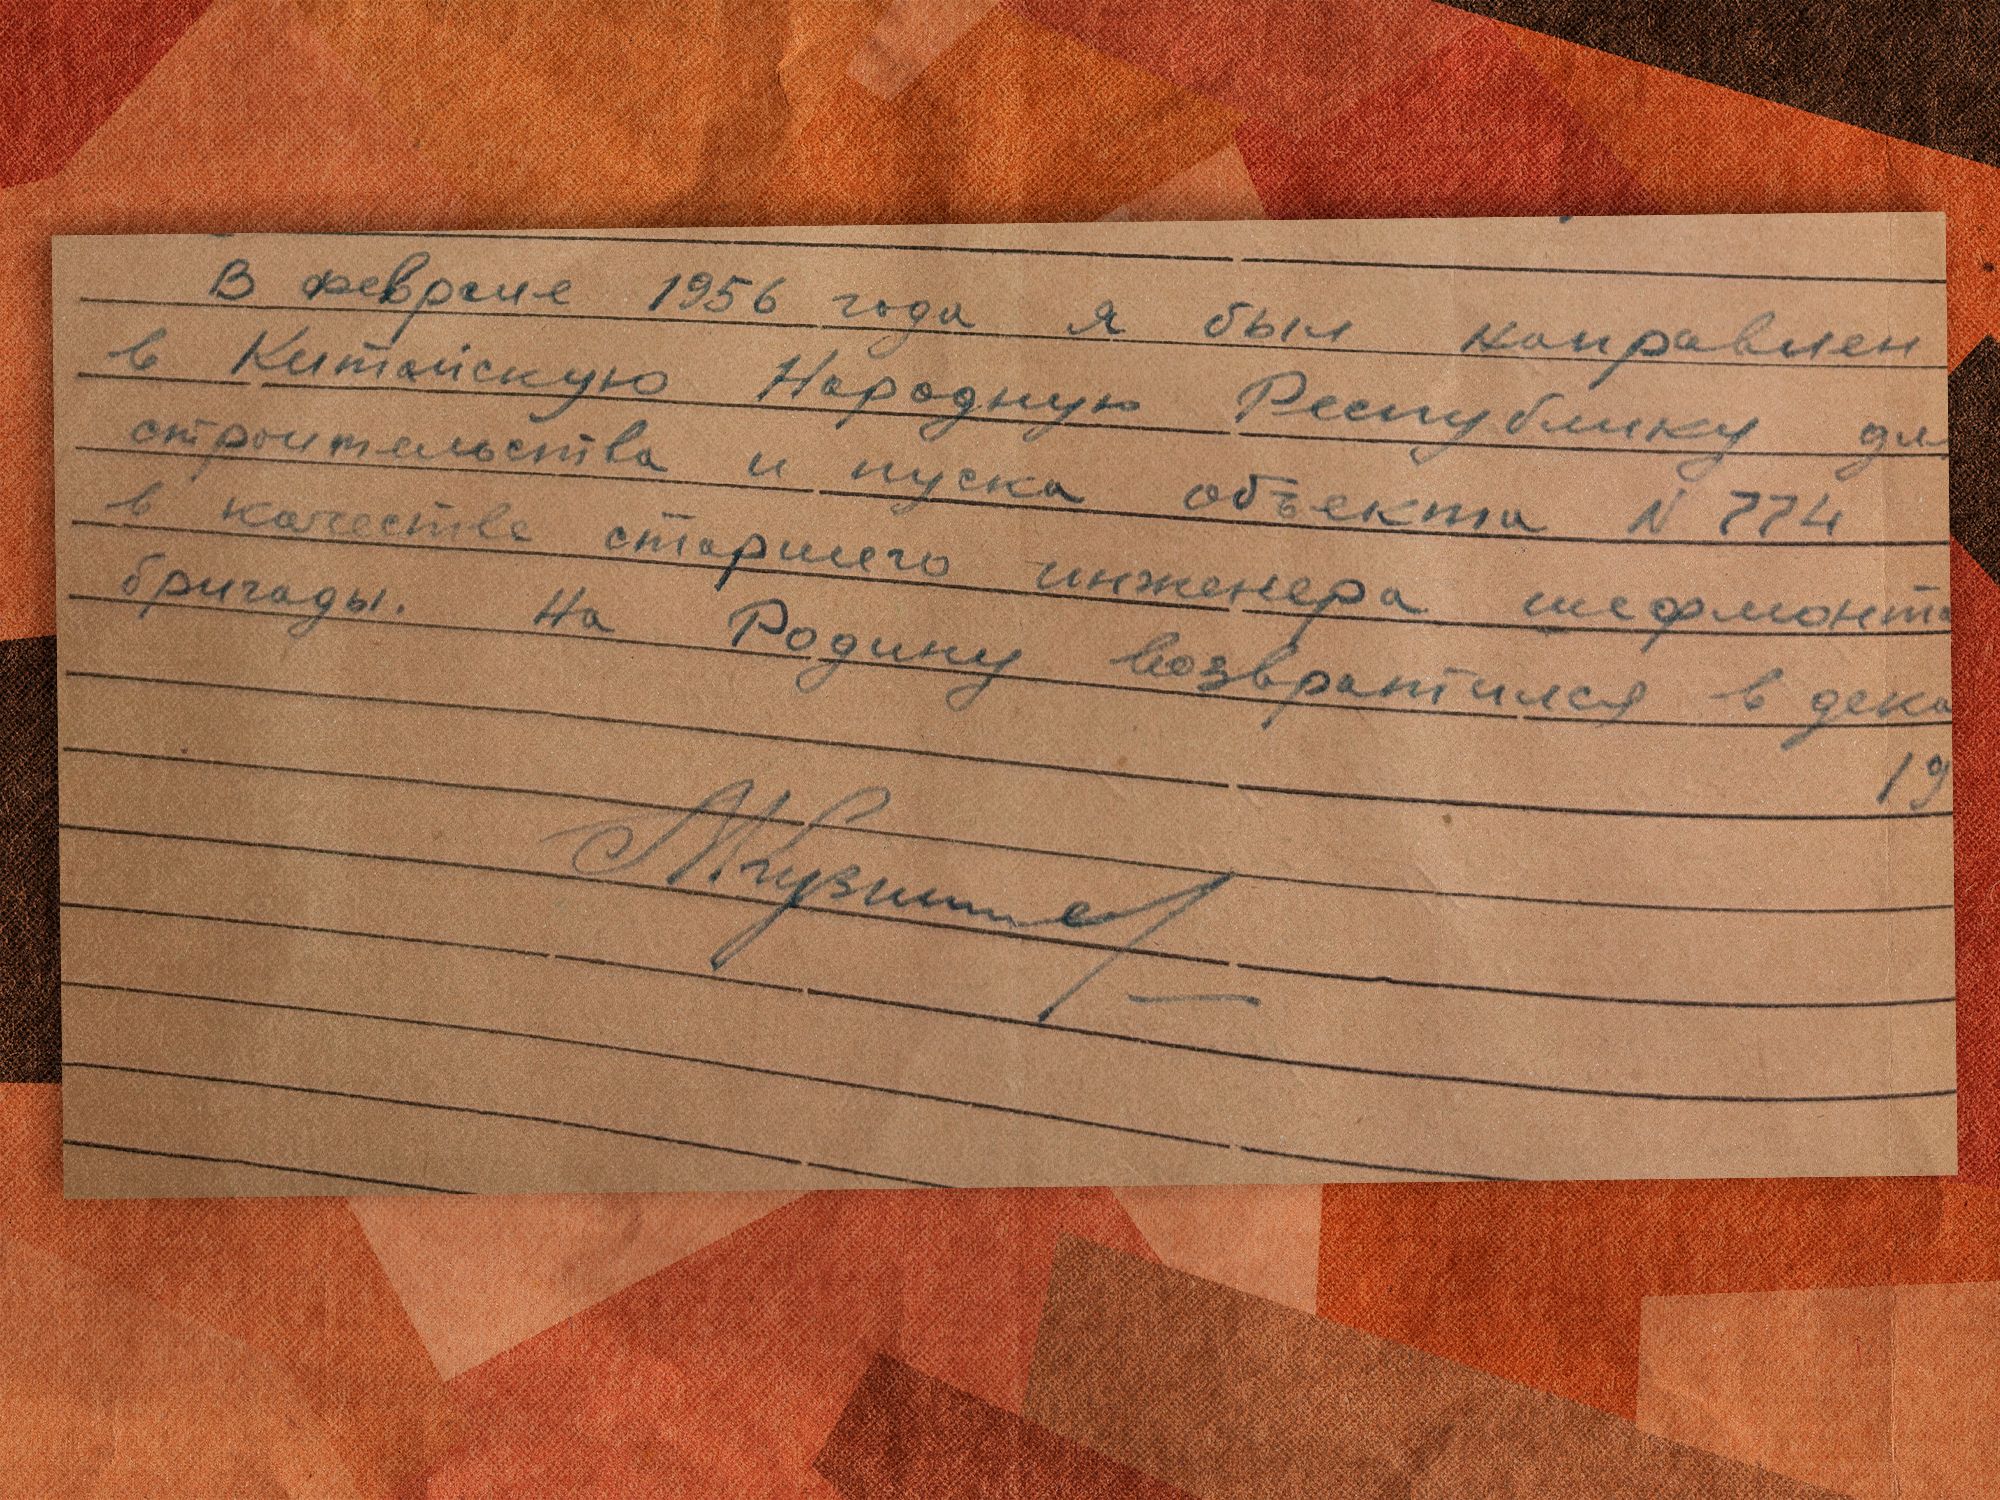 В феврале 1956 года я был направлен
в Китайскую Народную Республику дл
строительства и пуска объекта N 774
в качестве старшего инженера шефмонта
бригады. На Родину возвратился в дека
19